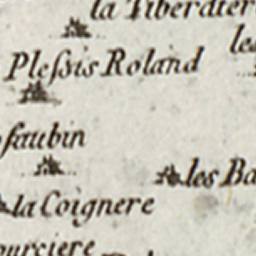 la Tiberdier
les
Plessis Roland
saubin
les Ba
la Coignere
ourciere